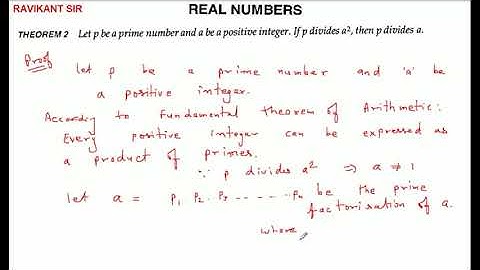 RAVIKANT SIR
REAL NUMBERS
THEOREM 2 Let p be a prime number and a be a positive integer. If p divides a², then p divides a.
Proof
let p be a prime number and 'a' be
a positive integer.
According to Fundamental theorem of Arithmetic:
Every positive integer can be expressed as
a product of primes.
∵ p divides a² ⇒ a ≠ 1
let a = p₁ p₂. p₃ ........ pₙ be the prime
factorisation of a.
where